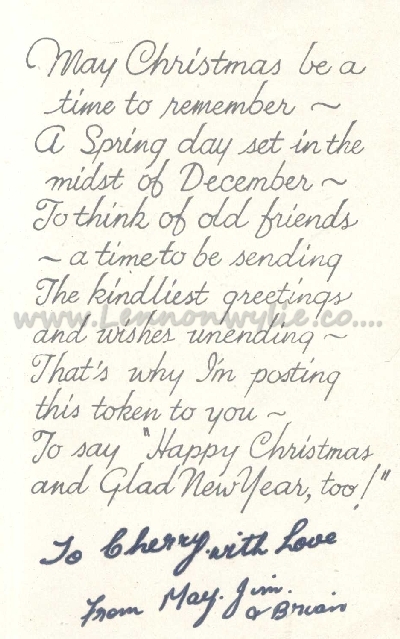 May Christmas be a
time to remember ~
A Spring day set in the
midst of December ~
To think of old friends
~ a time to be sending
The kindliest greetings
www.Lennonwylie.co....
and wishes unending ~
That's why I'm posting
this token to you ~
To say "Happy Christmas
and Glad New Year, too!"
To Cherry. with Love
From May. Jim.
& Brian